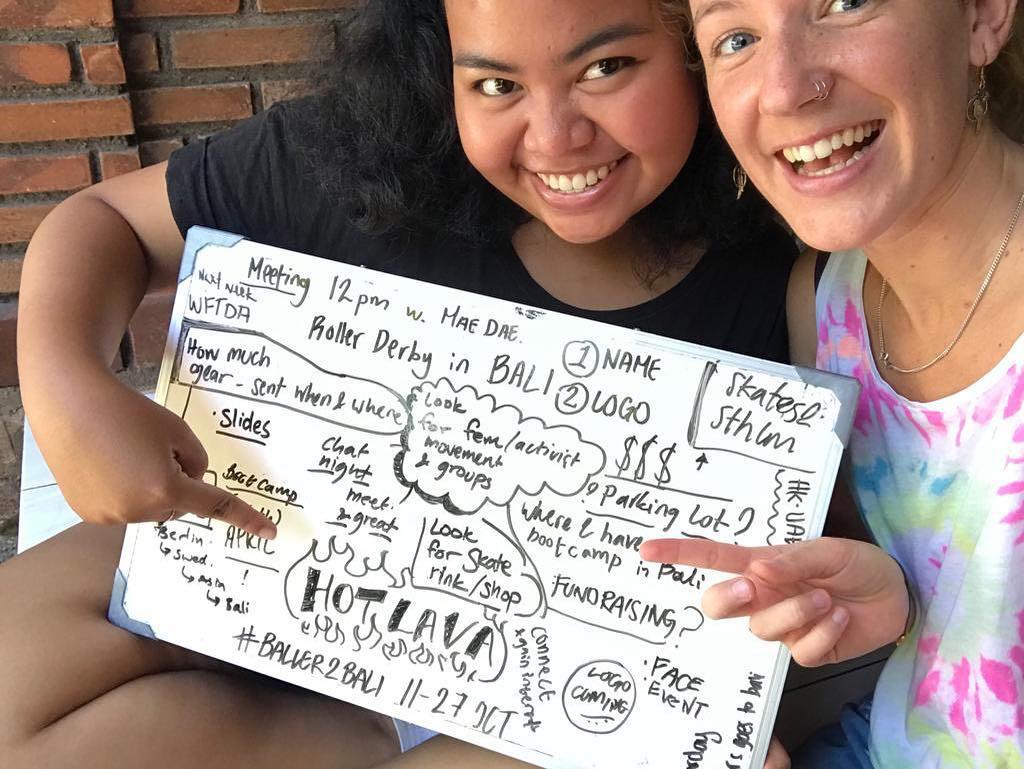 Meeting 12pm w. MAE DAE.
Next week
WFTDA
Roller Derby in BALI
① NAME
② LOGO
How much
gear - sent when & where
Skates2.
Sthlm
Look
for fem/activist
movement
& groups
$$$
· Slides
chat
night
meet.
& great
? Parking Lot?
Boot camp
APRIL
!
Berlin.
↳ swed.
↳ asia
↳ Bali
Look
for skate
rink/shop
where & have
bootcamp in Bali
FUNDRAISING?
HOT LAVA
connect
again
#BALLER2BALI 11-27 OCT
LOGO
COMING
FACE
EVENT
goes to bali